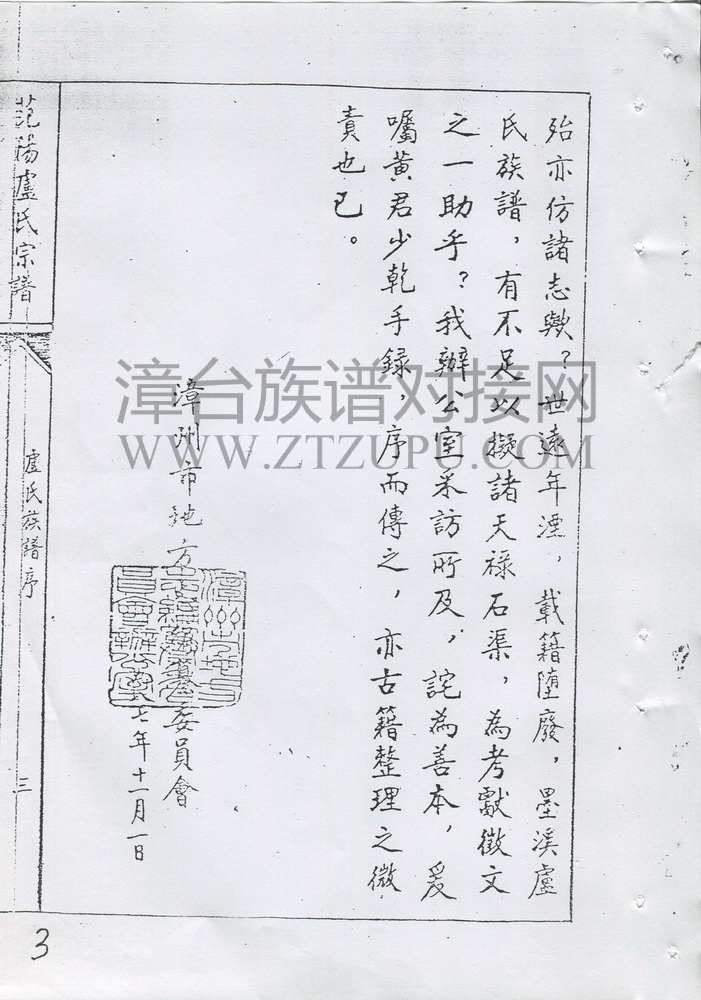 殆亦仿諸志歟？世遠年湮，載籍墮廢，墨溪盧
氏族譜，有不足以擬諸天祿石渠，為考獻徵文
之一助乎？我辦公室采訪所及，詫為善本，爰
囑黃君少乾手録，序而傳之，亦古籍整理之微
責也已。
漳州市地方
委員會
七年十一月一日
范陽盧氏宗譜
盧氏族譜序
三
3
漳台族谱对接网
WWW.ZTZUPU.COM